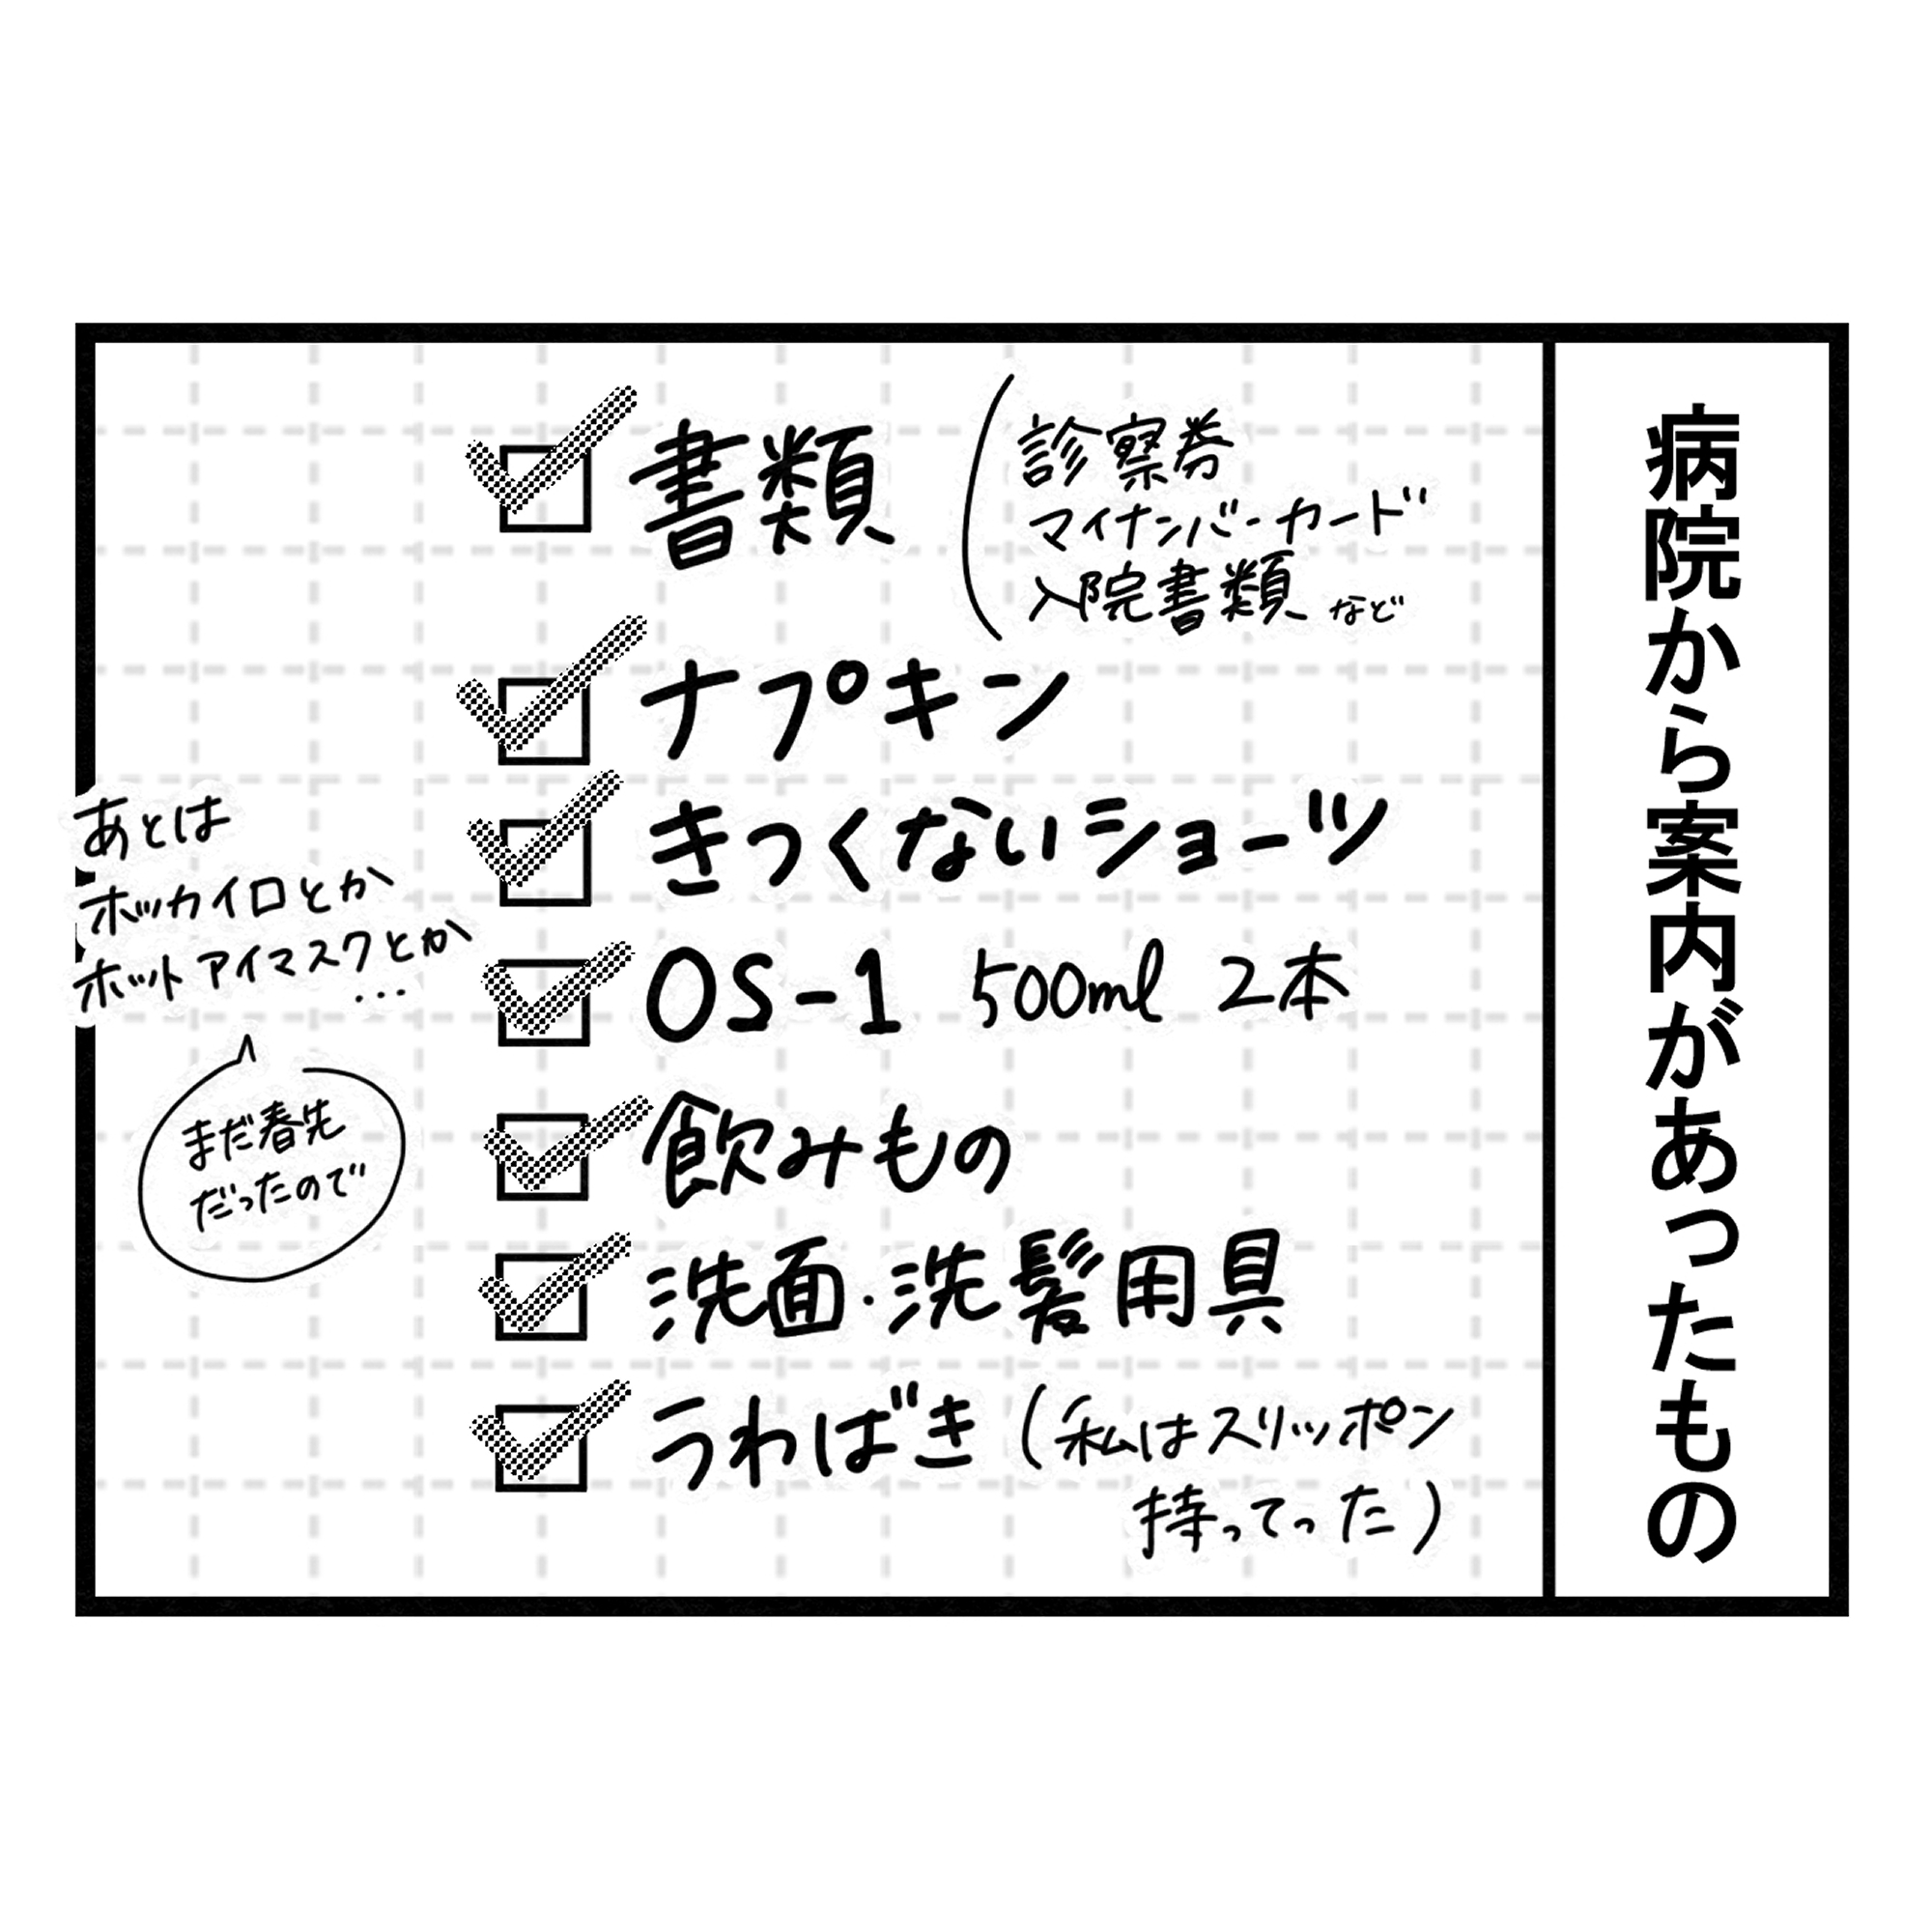 病院から案内があったもの
書類
(診察券
マイナンバーカード
入院書類 など
ナプキン
きつくないショーツ
OS-1 500ml 2本
飲みもの
洗面・洗髪用具
うわばき(私はスリッポン
持ってった)
あとは
ホッカイロとか
ホットアイマスクとか
...
まだ春先
だったので